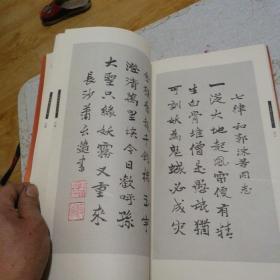 七律和郭沫若同志
一从大地起風雷便有精
生白骨堆僧是愚氓猶
可訓妖為鬼蜮必成灾
金猴奮起千鈞棒玉宇
澄清萬里埃今日歡呼孫
大聖只緣妖霧又重來
長沙蕭書